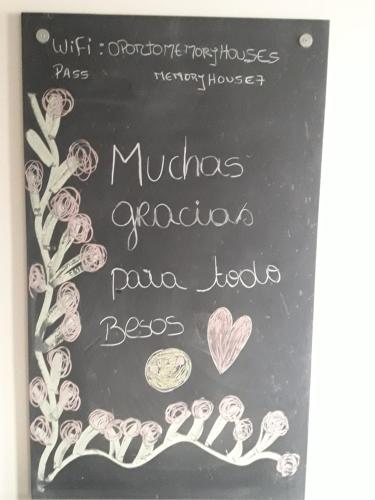 WiFi : OPORTOMEMORYHOUSES
PASS MEMORYHOUSE7
Muchas
gracias
para todo
Besos